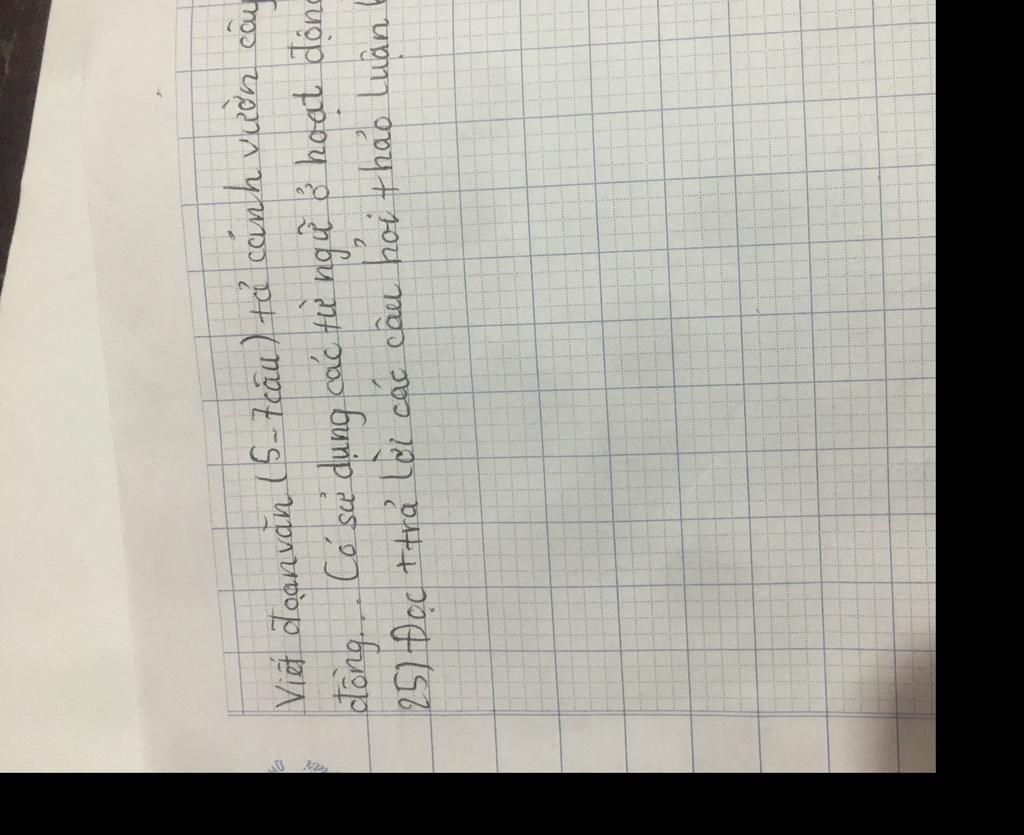 Viết đoạn văn (5-7 câu) tả cảnh vườn cây
đồng... Có sử dụng các từ ngữ ở hoạt động
25) Đọc + trả lời các câu hỏi thảo luận